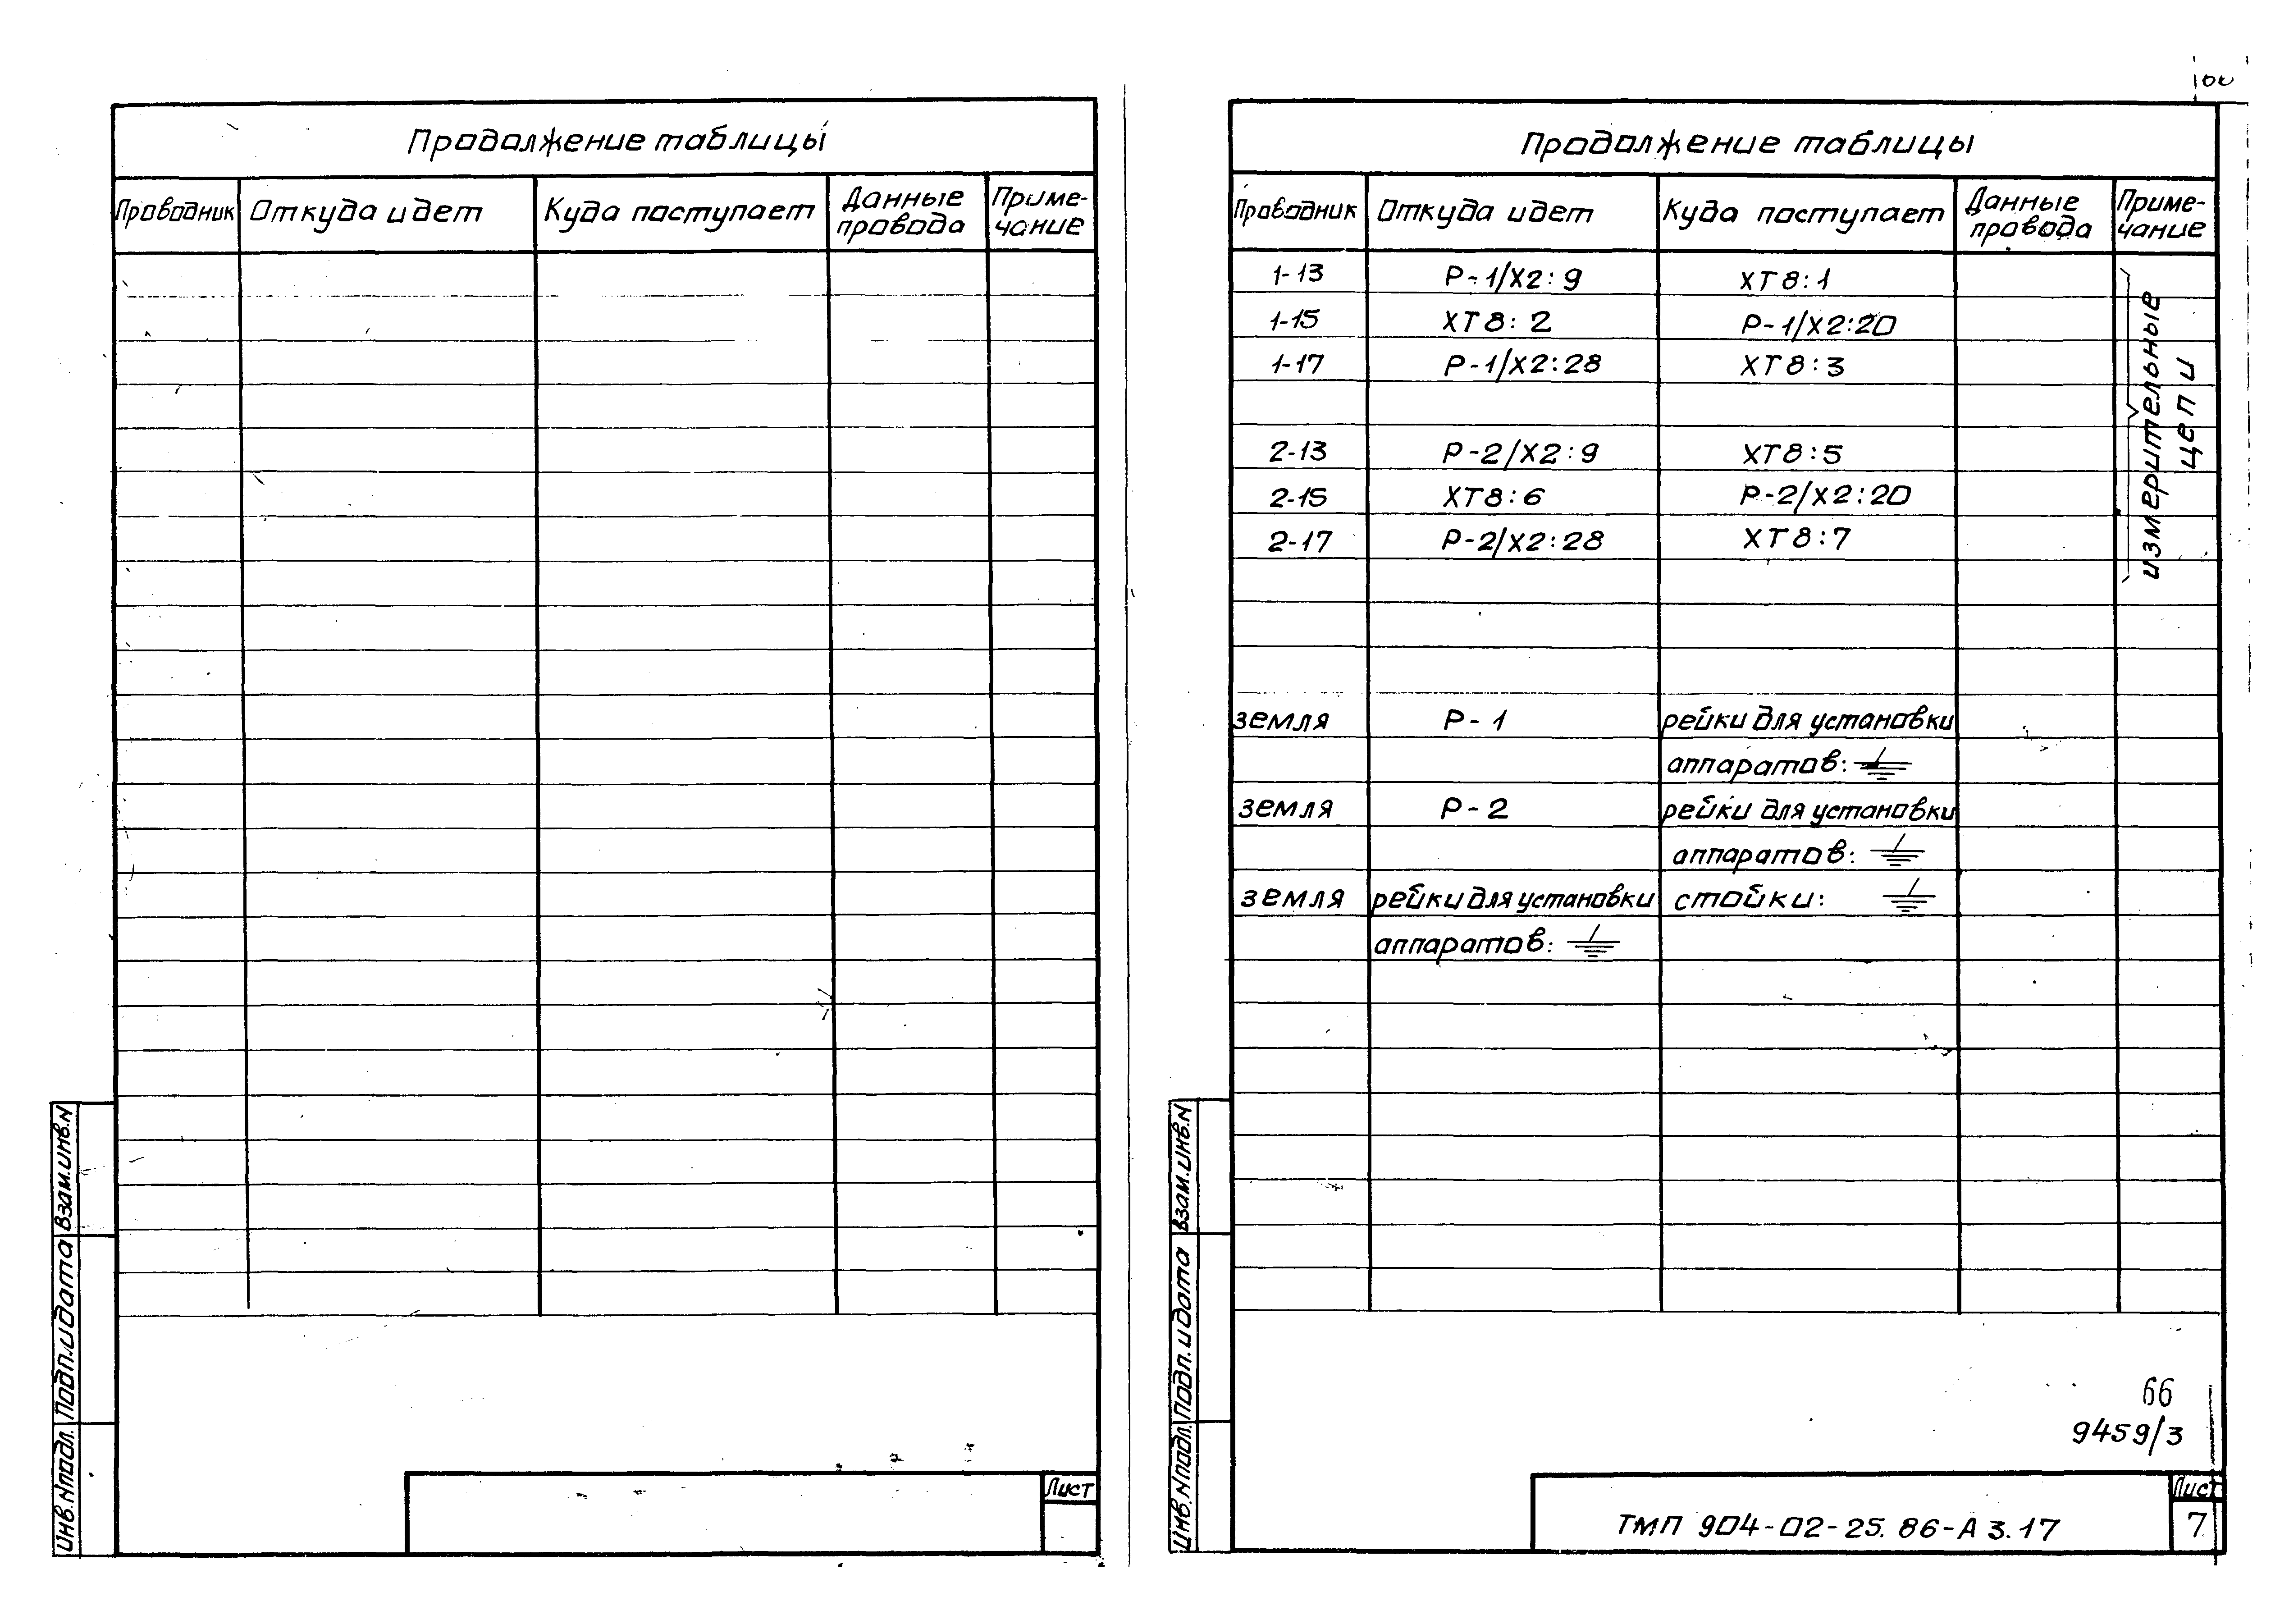 Продолжение таблицы
Проводник Откуда идет Куда поступает Данные провода Приме-чание
Взам.инв.N
Подп.и дата
Инв.Nподл.
Лист
Продолжение таблицы
Проводник Откуда идет Куда поступает Данные провода Приме-чание
1-13 Р-1/Х2:9 ХТ8:1
1-15 ХТ8:2 Р-1/Х2:20
1-17 Р-1/Х2:28 ХТ8:3
2-13 Р-2/Х2:9 ХТ8:5
2-15 ХТ8:6 Р-2/Х2:20
2-17 Р-2/Х2:28 ХТ8:7
измерительные
цепи
земля Р-1 рейки для установки
аппаратов:
земля Р-2 рейки для установки
аппаратов:
земля рейки для установки стойки:
аппаратов:
Взам.инв.N
Подп.и дата
Инв.Nподл.
66
9459/3
ТМП 904-02-25.86-А3.17
Лист
7